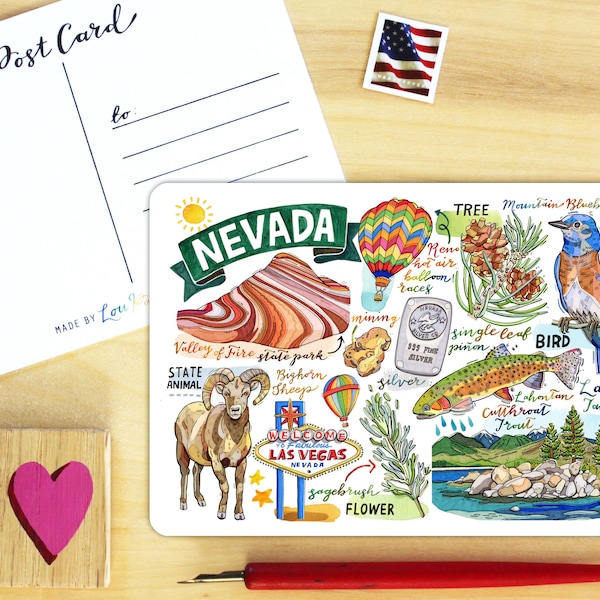 Post Card
to:
MADE BY Lou
NEVADA
Valley of Fire state park
Reno
hot air
balloon
races
TREE
single leaf
piñon
Mountain
BIRD
mining
NEVADA
SILVER CO
999 FINE
SILVER
silver
STATE
ANIMAL
Bighorn
Sheep
WELCOME
TO Fabulous
LAS VEGAS
NEVADA
sagebrush
FLOWER
Lahontan
Cutthroat
Trout